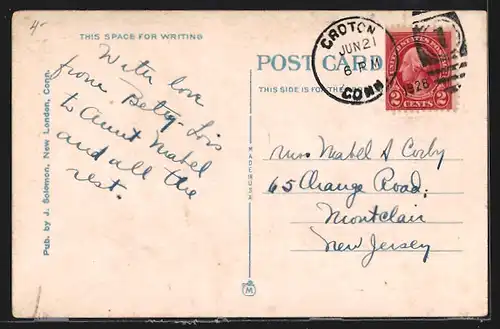 4-
THIS SPACE FOR WRITING
With love
from Betty-Lois
to Aunt Mabel
and all the
rest.
Pub. by J. Solomon, New London, Conn.
MADE IN U.S.A.
M
POST CARD
THIS SIDE IS FOR THE
GROTON
JUN 21
6 PM
CONN.
1928
2 CENTS 2
Miss Mabel A Corby
65 Orange Road;
Montclair
New Jersey